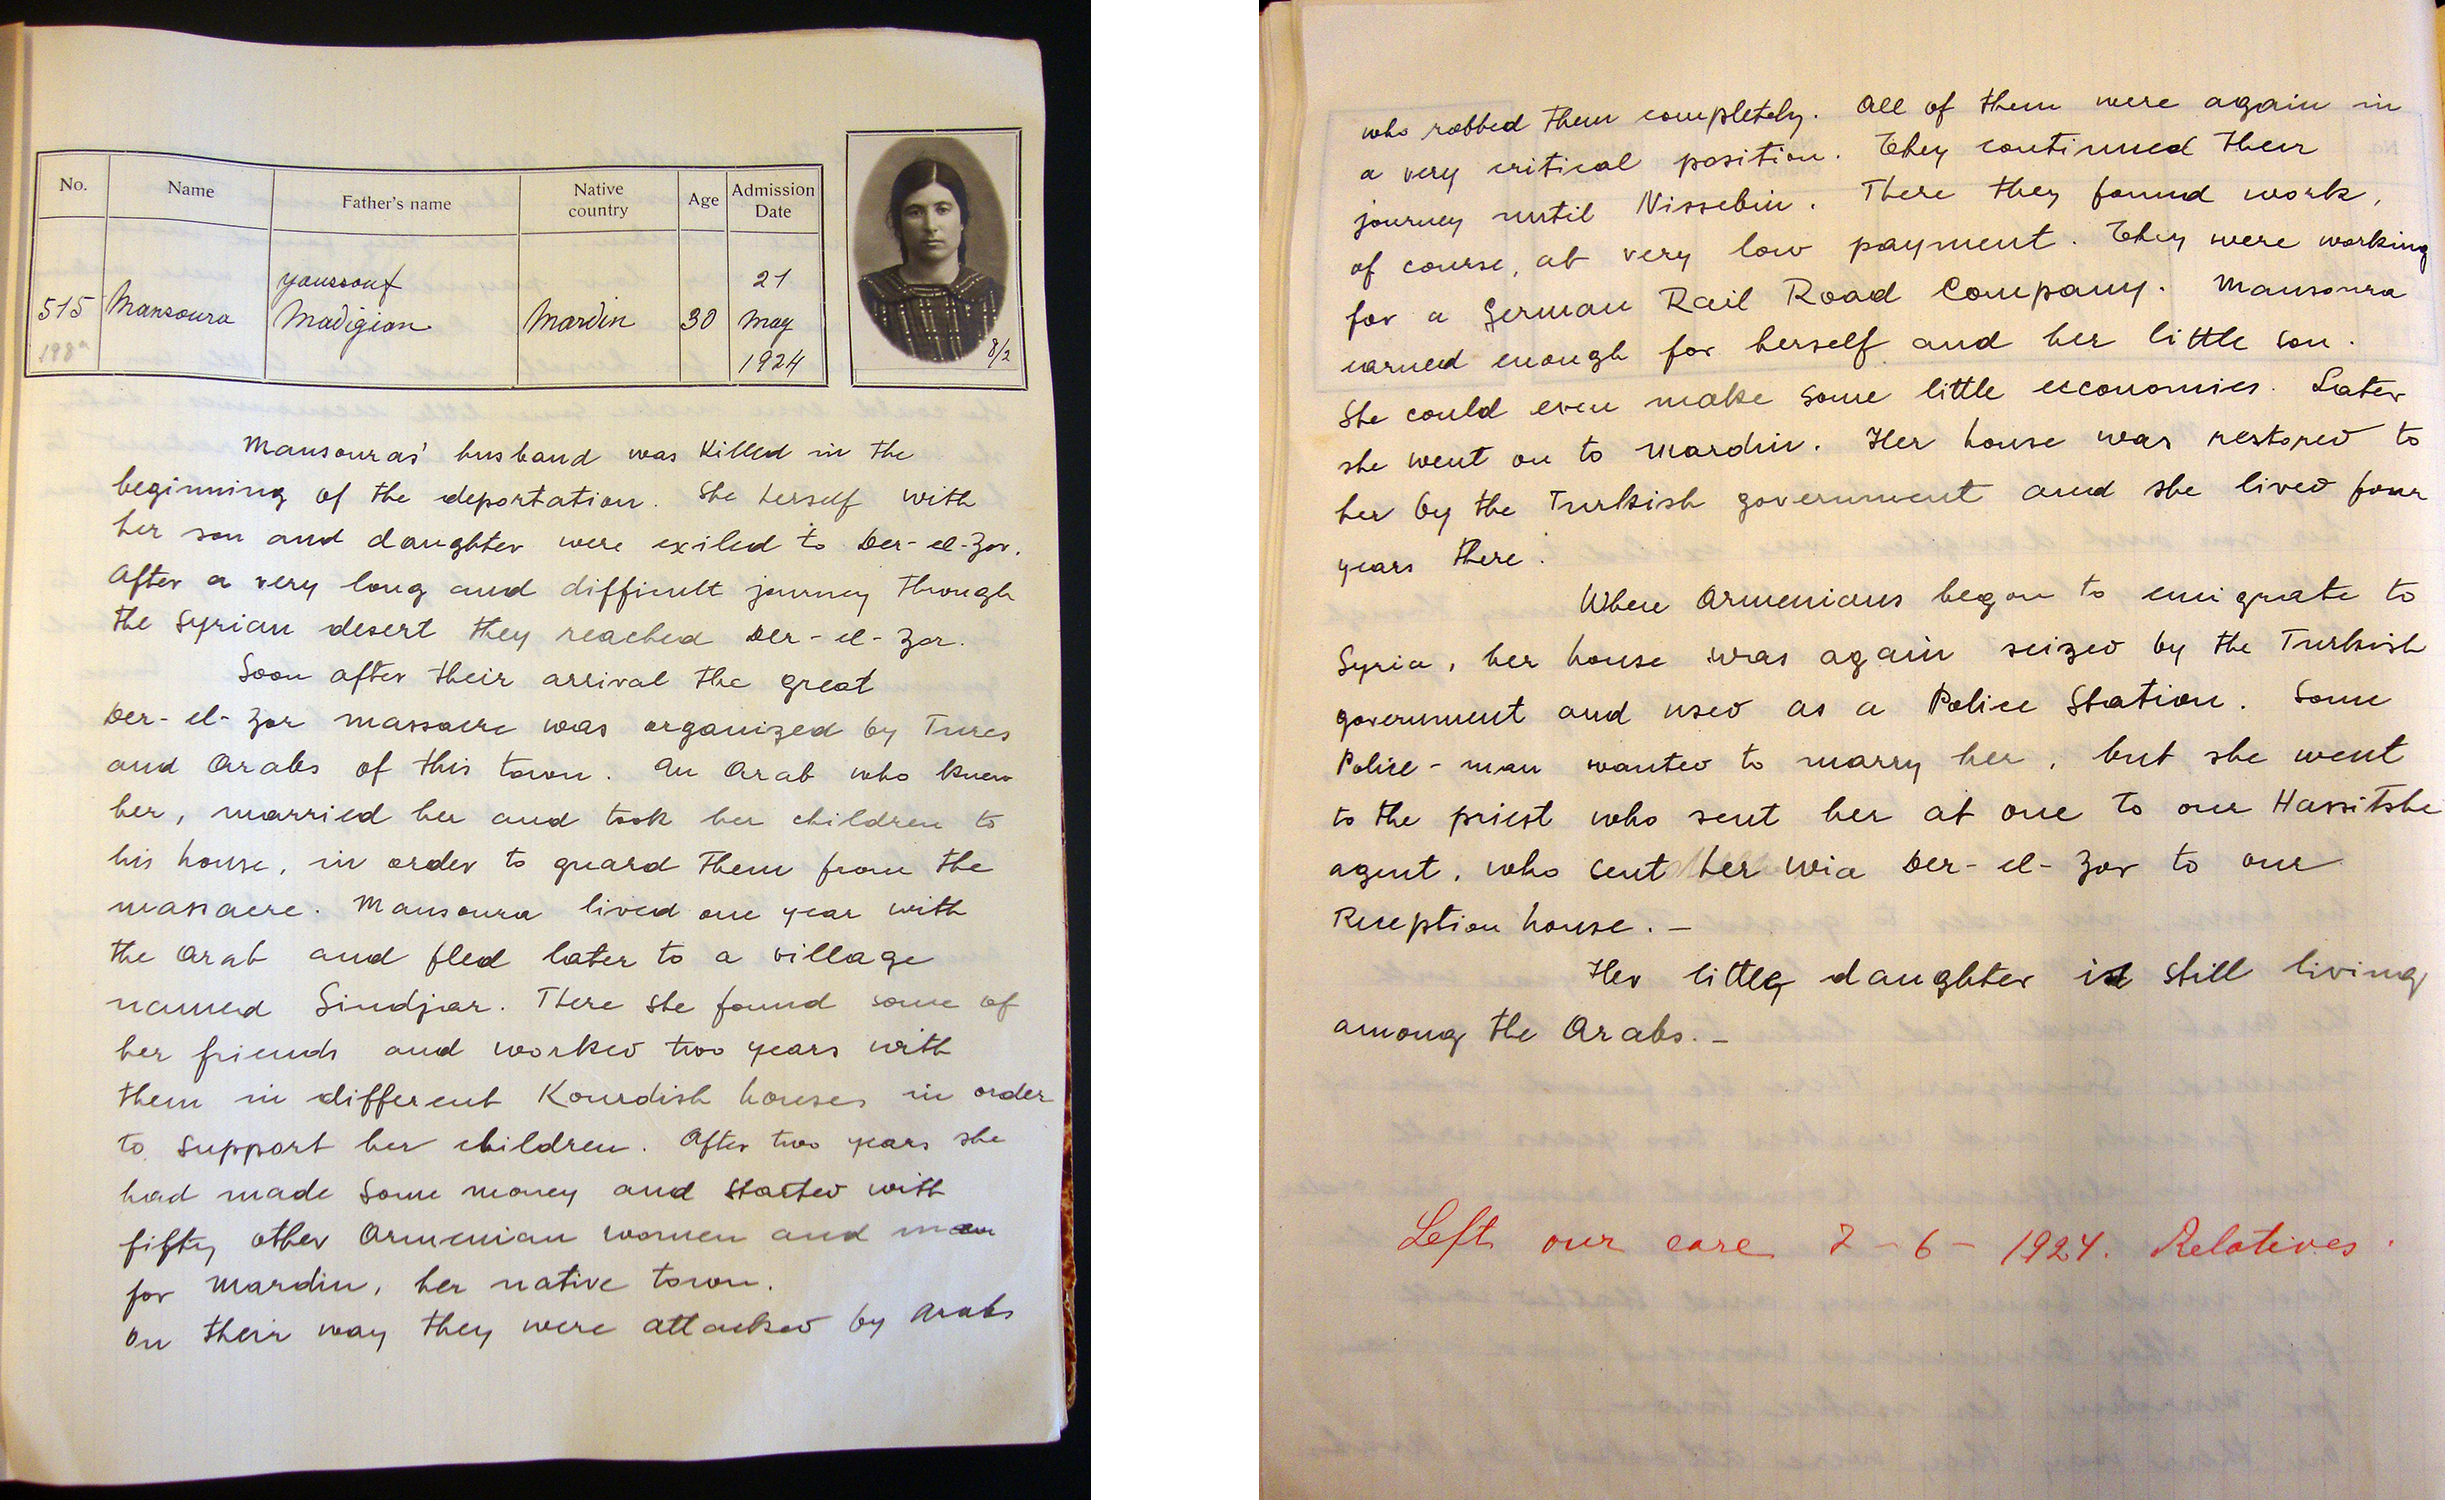 No. Name Father's name Native country Age Admission Date
515 Mansoura youssouf Madigian Mardin 30 21 May 1924
198a
8/2
Mansouras' husband was Killed in the
beginning of the deportation. She herself with
her son and daughter were exiled to Der-el-Zor.
After a very long and difficult journey through
the Syrian desert they reached Der-el-Zor.
Soon after their arrival the great
Der-el-Zor massacre was organized by Turcs
and Arabs of this town. An Arab who knew
her, married her and took her children to
his house, in order to guard them from the
massacre. Mansoura lived one year with
the Arab and fled later to a village
named Sindjar. There she found some of
her friends and worked two years with
them in different Kourdish houses in order
to support her children. After two years she
had made some money and started with
fifty other Armenian women and men
for Mardin, her native town.
On their way they were attacked by Arabs
who robbed them completely. All of them were again in
a very critical position. They continued their
journey until Nissebin. There they found work,
of course, at very low payment. They were working
for a German Rail Road Company. Mansoura
earned enough for herself and her little son.
She could even make some little economies. Later
she went on to Mardin. Her house was restored to
her by the Turkish government and she lived four
years there.
When Armenians began to emigrate to
Syria, her house was again seized by the Turkish
government and used as a Police Station. Some
Police-man wanted to marry her, but she went
to the priest who sent her at one to our Hassitshe
agent, who sent her wia Der-el-Zor to our
Reception house.-
Her little daughter is still living
among the Arabs.-
Left our care 2-6-1924. Relatives.